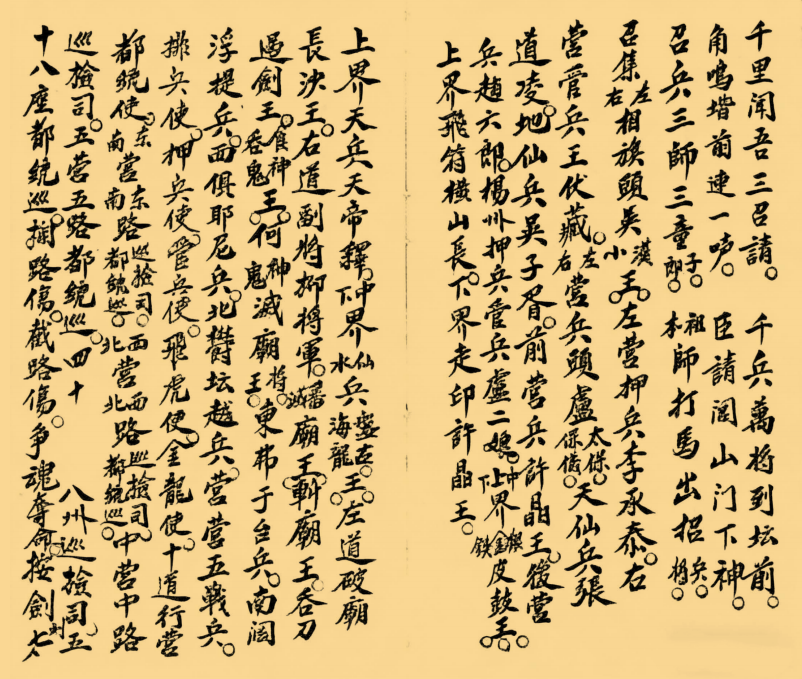 千里闻吾三召請。千兵萬將到坛前。
角鳴堦前連一声。臣請闾山门下神。
召兵三師三童子郎。祖本師打馬出招兵将。
召集左右相族頭吴漢小王。左营押兵李承泰。右
营管兵王伏藏。左右营兵頭盧太保。保儀。天仙兵張
道凌。地仙兵吴子胥。前营兵許晶王。後营
兵趙六郎。楊州押兵管兵盧二娘。中上下界金鉄皮鼓王。
上界飛符横山長。下界走印許晶王。
上界天兵天帝釋。中下界仙水兵盤古海龍王。左道破廟
長沙王。右道副將柳將軍。番滅廟王。斬廟王吞刀
過劍王。食神吞鬼王。何神鬼滅廟将王。東弗于台兵。南阎
浮提兵。西俱耶尼兵。北欝坛越兵。营营五戰兵。
排兵使。押兵使。管兵使。飛虎使。金龍使。十道行营
都統使。东南营东南路巡檢司都統巡。西北营西北路巡檢司都統巡。中营中路
巡檢司。五营五路都統巡。四十八州巡檢司。五
十八座都統巡。路傷。截路傷。争魂奪命接劍